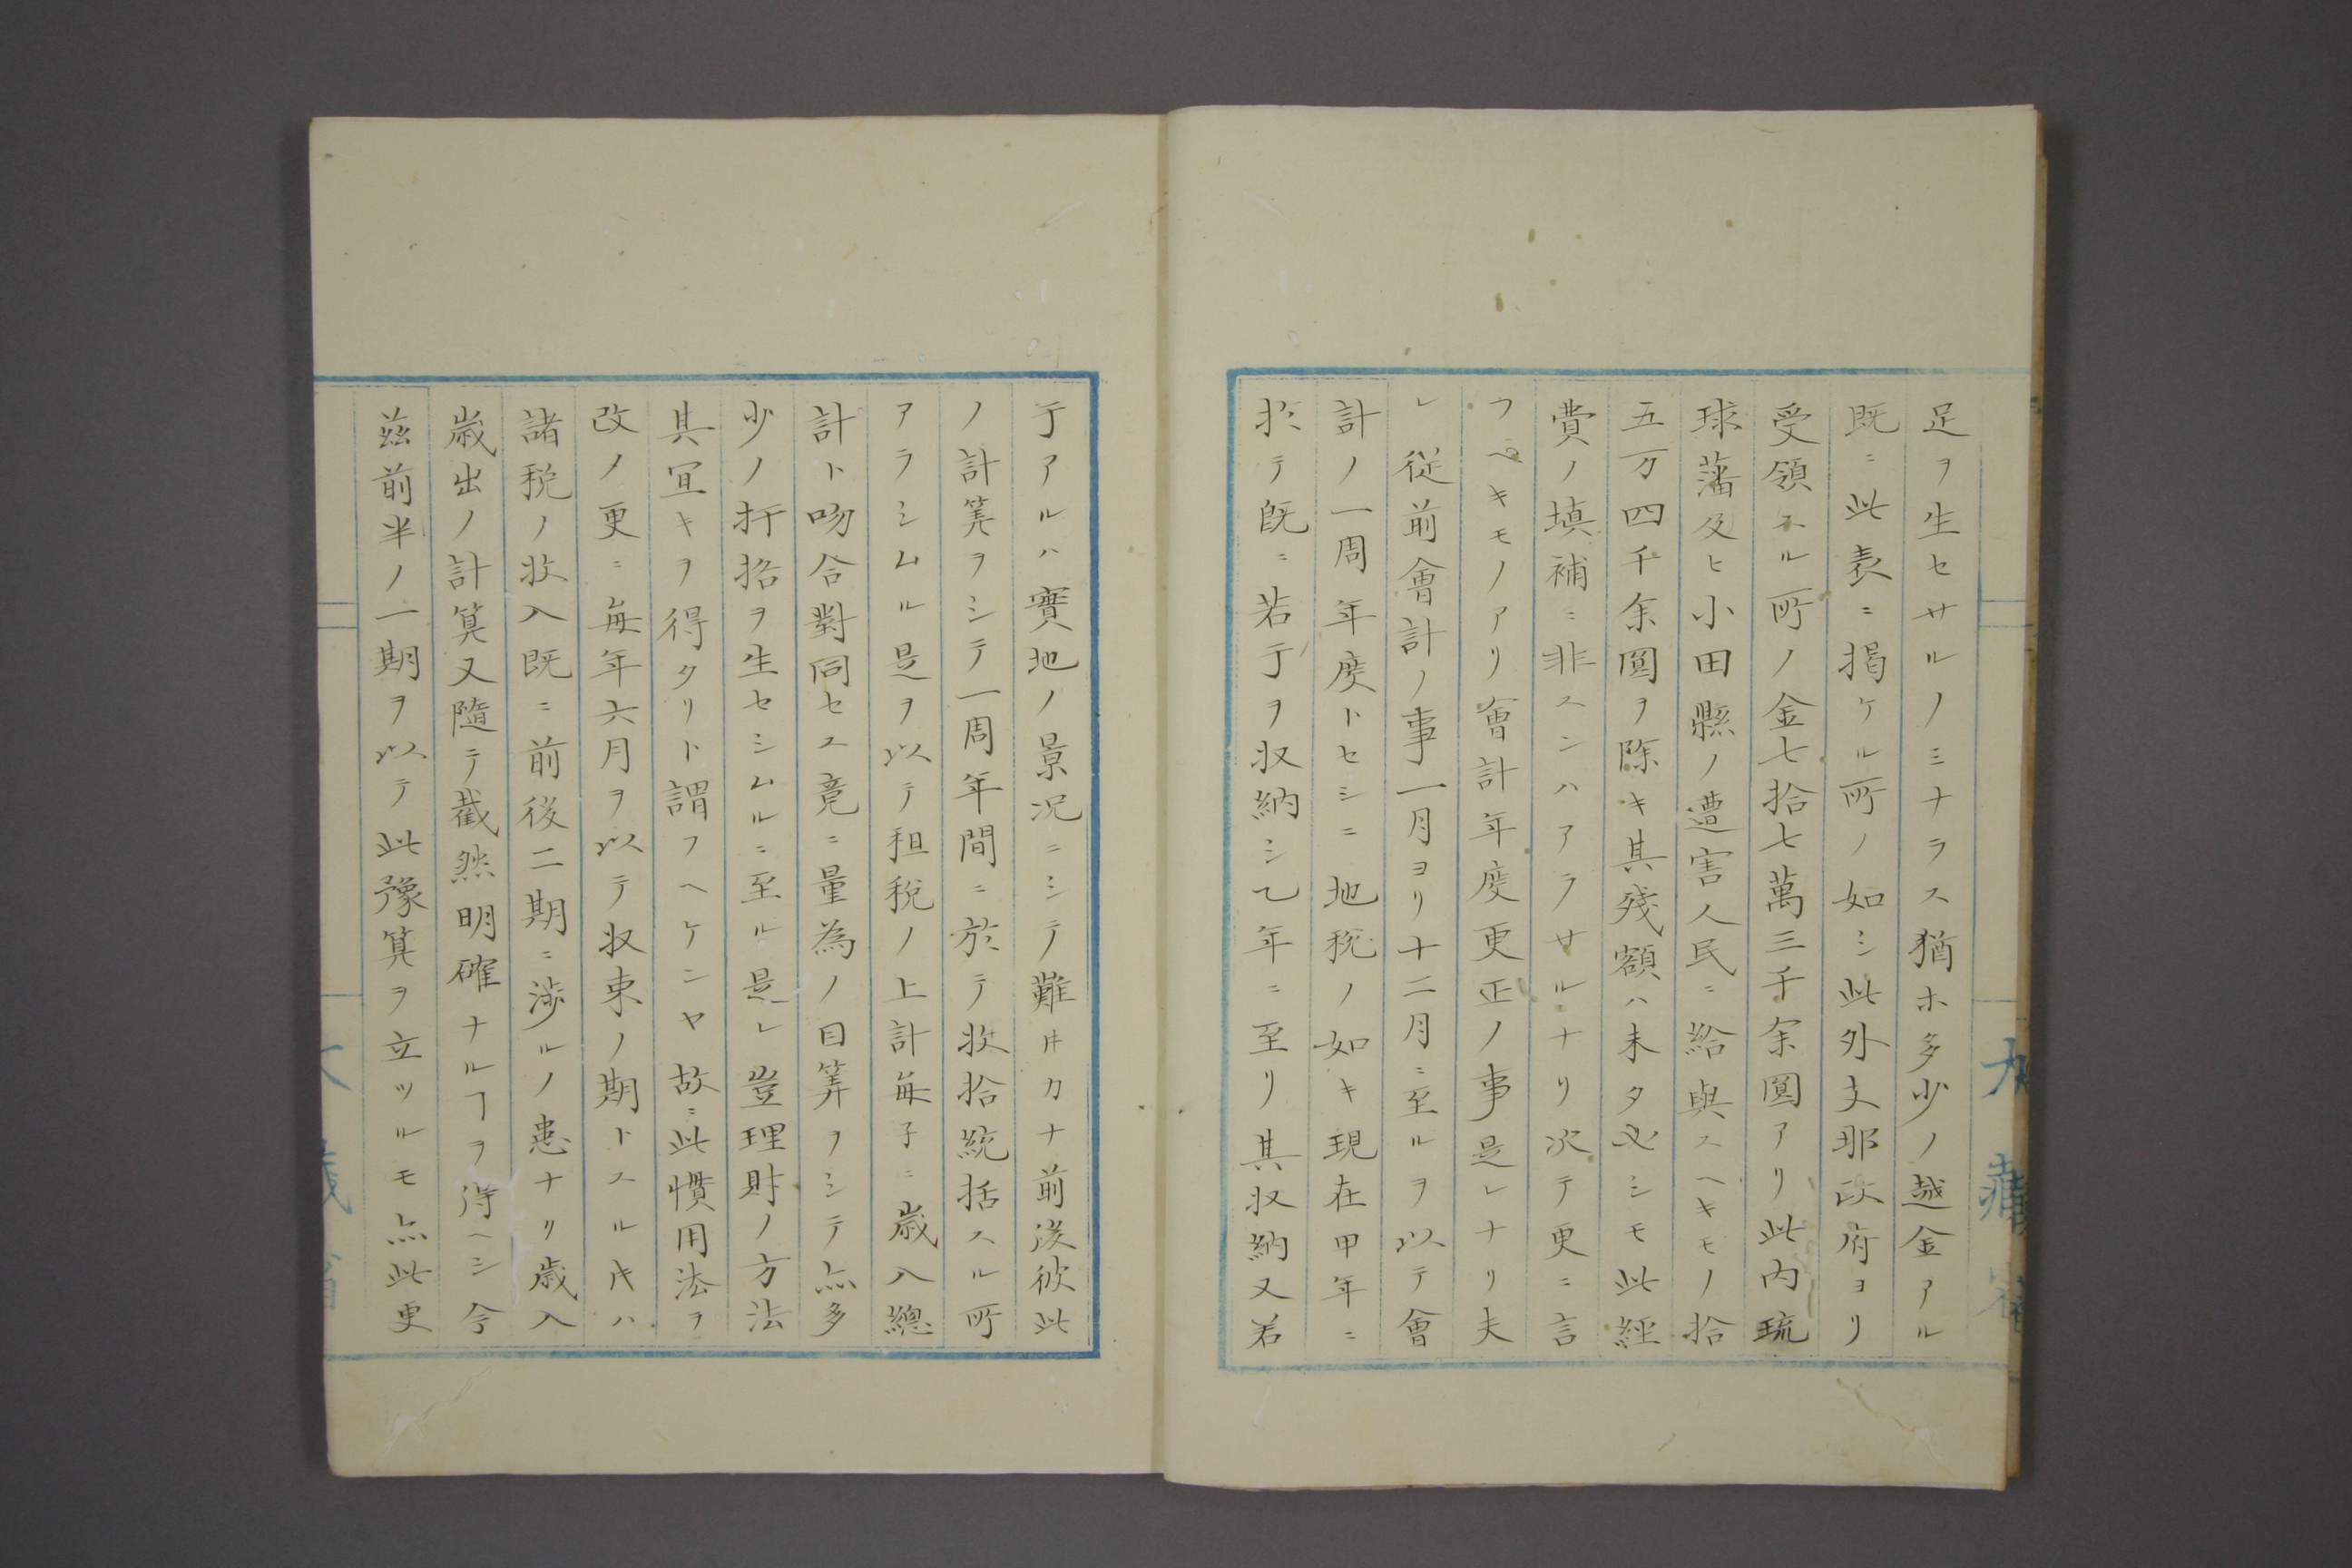 足ヲ生セサルノミナラス猶ホ多少ノ越金アル
既ニ此表ニ掲ケル所ノ如シ此外支那政府ヨリ
受領スル所ノ金七拾七萬三千余圓アリ此内琉
球藩及ヒ小田縣ノ遭害人民ニ給與スヘキモノ拾
五万四千余圓ヲ除キ其殘額ハ未タ必シモ此經
費ノ填補ニ非スンハアラサルナリ次テ更ニ言
フヘキモノアリ會計年度更正ノ事是レナリ夫
レ従前會計ノ事一月ヨリ十二月ニ至ルヲ以テ會
計ノ一周年度トセシニ地税ノ如キ現在甲年ニ
於テ既ニ若干ヲ収納シ乙年ニ至リ其収納又若
干アルハ實地ノ景况ニシテ難𪜈カナ前後彼此
ノ計筭ヲシテ一周年間ニ於テ收拾統括スル所
アラシムル是ヲ以テ租税ノ上計毎子ニ歳入總
計ト吻合對同セス竟ニ量為ノ目筭ヲシテ亦多
少ノ扞挌ヲ生セシムルニ至ル是レ豈理財ノ方法
其宜キヲ得タリト謂フヘケンヤ故ニ此慣用法ヲ
改メ更ニ毎年六月ヲ以テ収束ノ期トスル片ハ
諸税ノ收入既ニ前後二期ニ渉ルノ患ナリ歳入
歳出ノ計算又隨テ截然明確ナルヿヲ得ヘシ今
茲前半ノ一期ヲ以テ此豫算ヲ立ツルモ亦此更
大藏省